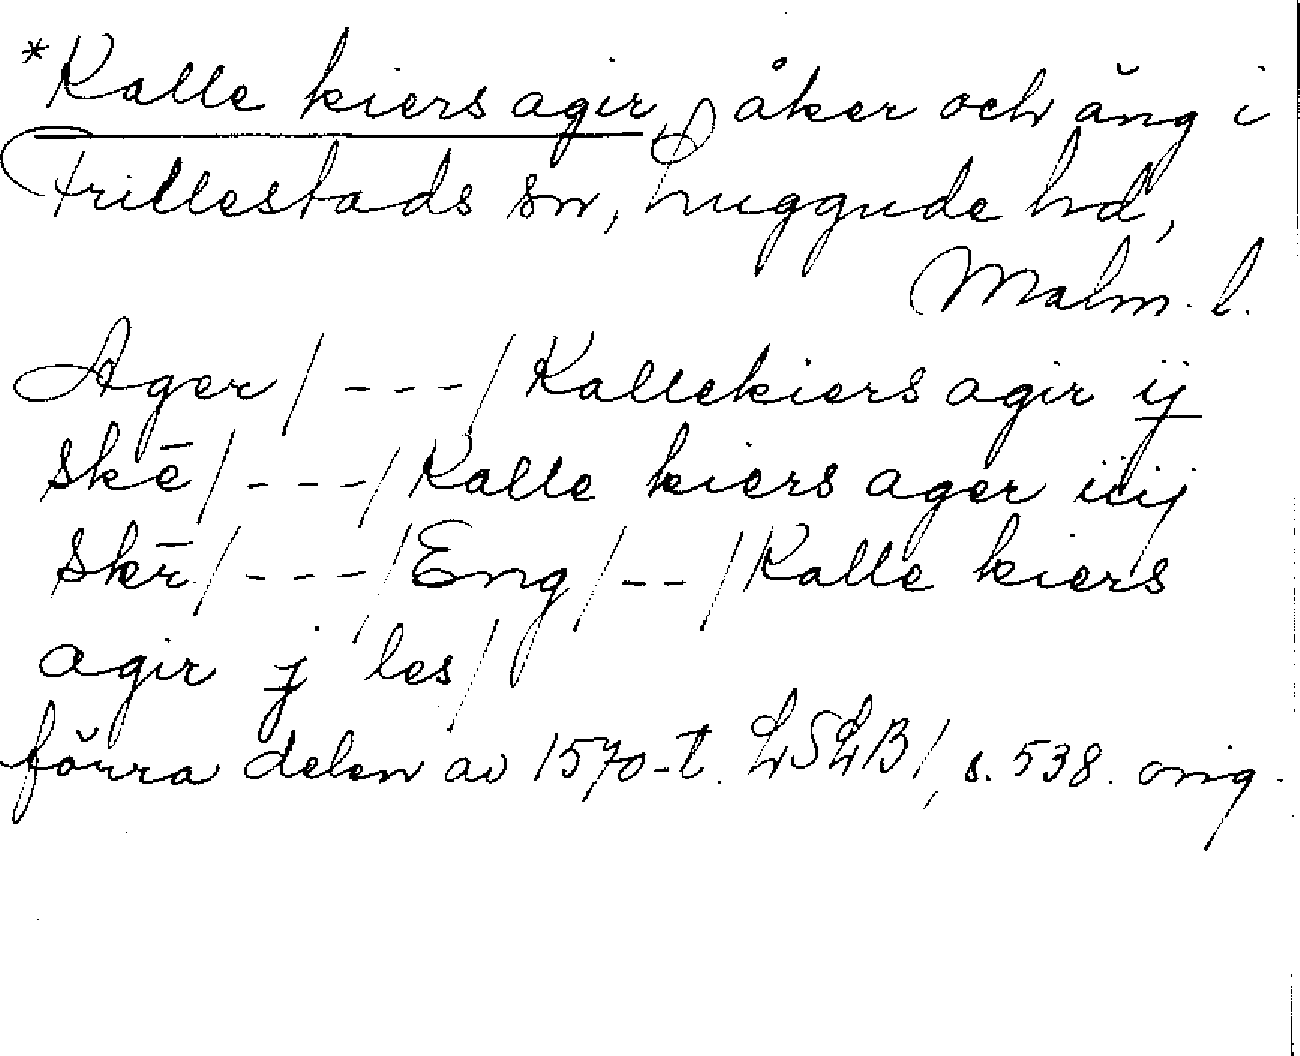 *Kalle kiers agir, åker och äng i
Frillestads sn, Luggude hd,
Malm. l.
Ager/---/Kallekiers agir ij
skē/---/Kalle kiers ager iiij
skr̄/---/Eng/--/Kalle kiers
agir j les/
förra delen av 1570-t. LSLB/, s. 538. orig.